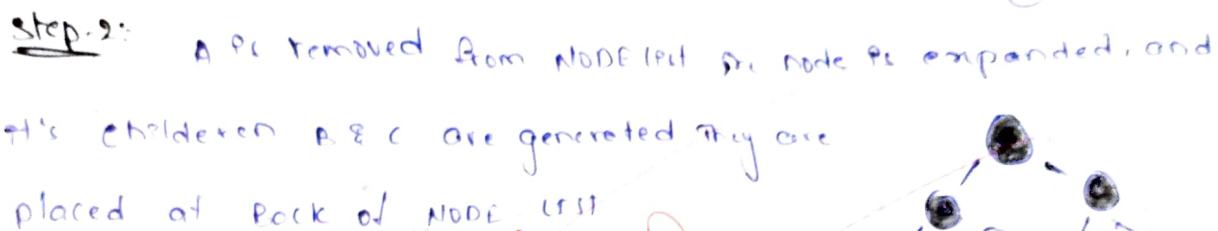 Step-2:
A is removed from NODE list the node is expanded, and
it's childeren B & C are generated They are
placed at Back of NODE list